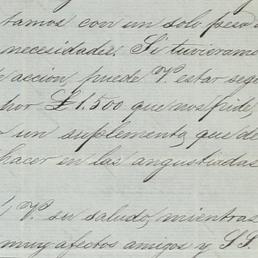 tamos con un solo peso d
necesidades. Si tuvieramo
e accion, puede V. estar segu
por £1.500 que nos pide,
o un suplemento, que de
hacer en las angustiadas
V. su saludo, mientras
muy afectos amigos y SS